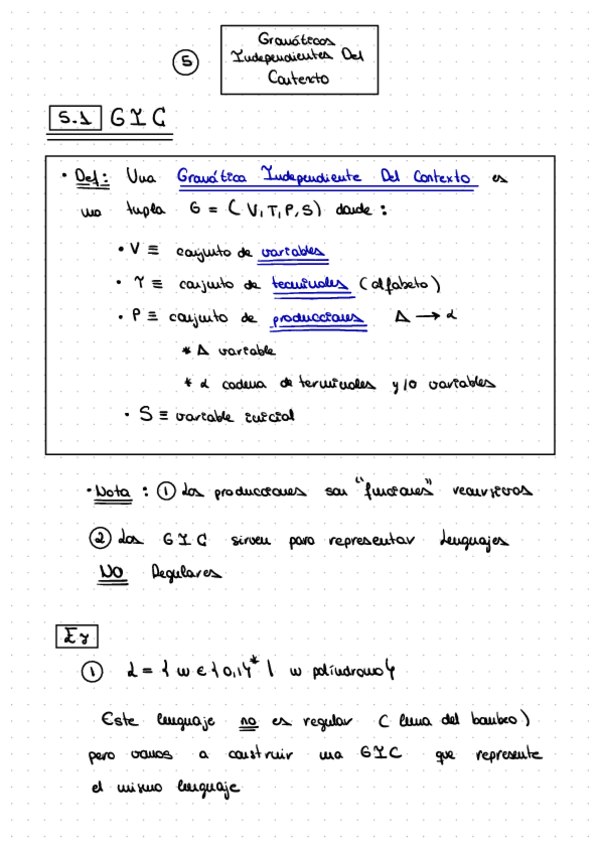 5
Gramáticas
Independientes Del
Contexto
5.1 GIC
• Def: Una Gramática Independiente Del Contexto es
una tupla G = (V, T, P, S) donde :
• V ≡ conjunto de variables
• T ≡ conjunto de terminales (alfabeto)
• P ≡ conjunto de producciones A → α
* A variable
* α cadena de terminales y/o variables
• S ≡ variable inicial
• Nota : ① Las producciones son "funciones" recursivas
② Las GIC sirven para representar Lenguajes
NO Regulares
Ej
① L = { w ∈ {0,1}* | w palíndromo}
Este lenguaje no es regular ( lema del bombeo )
pero vamos a construir una GIC que represente
el mismo lenguaje